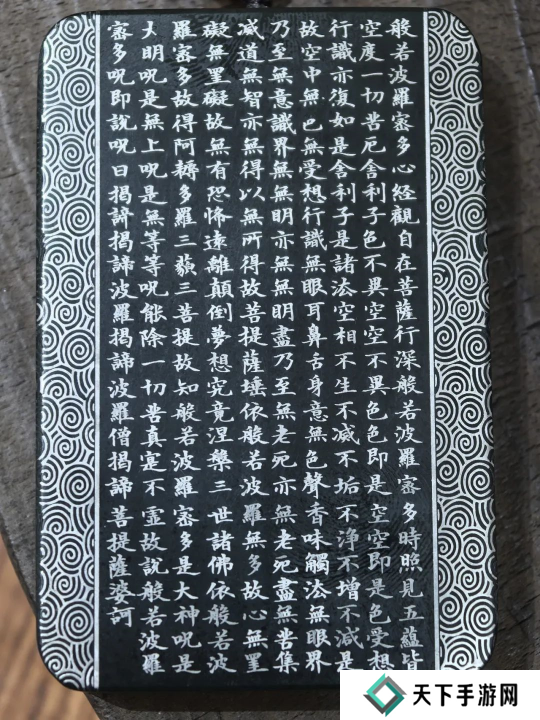 般若波羅蜜多心經觀自在菩薩行深般若波羅蜜多時照見五蘊皆
空度一切苦厄舍利子色不異空空不異色色即是空空即是色受想
行識亦復如是舍利子是諸法空相不生不滅不垢不淨不增不減是
故空中無色無受想行識無眼耳鼻舌身意無色聲香味觸法無眼界
乃至無意識界無無明亦無無明盡乃至無老死亦無老死盡無苦集
滅道無智亦無得以無所得故菩提薩埵依般若波羅無多故心無罣
礙無罣礙故無有恐怖遠離顛倒夢想究竟涅槃三世諸佛依般若波
羅蜜多故得阿耨多羅三藐三菩提故知般若波羅蜜多是大神呪是
大明呪是無上呪是無等等呪能除一切苦真寔不虛故説般若波羅
蜜多呪即説呪曰揭諦揭諦波羅揭諦波羅僧揭諦菩提薩婆訶
天下手游网